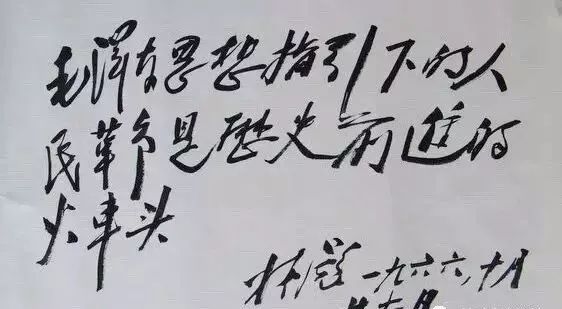 毛泽东思想指引下的人
民革命是歷史前进的
火車头
林彪 一九六六,十月